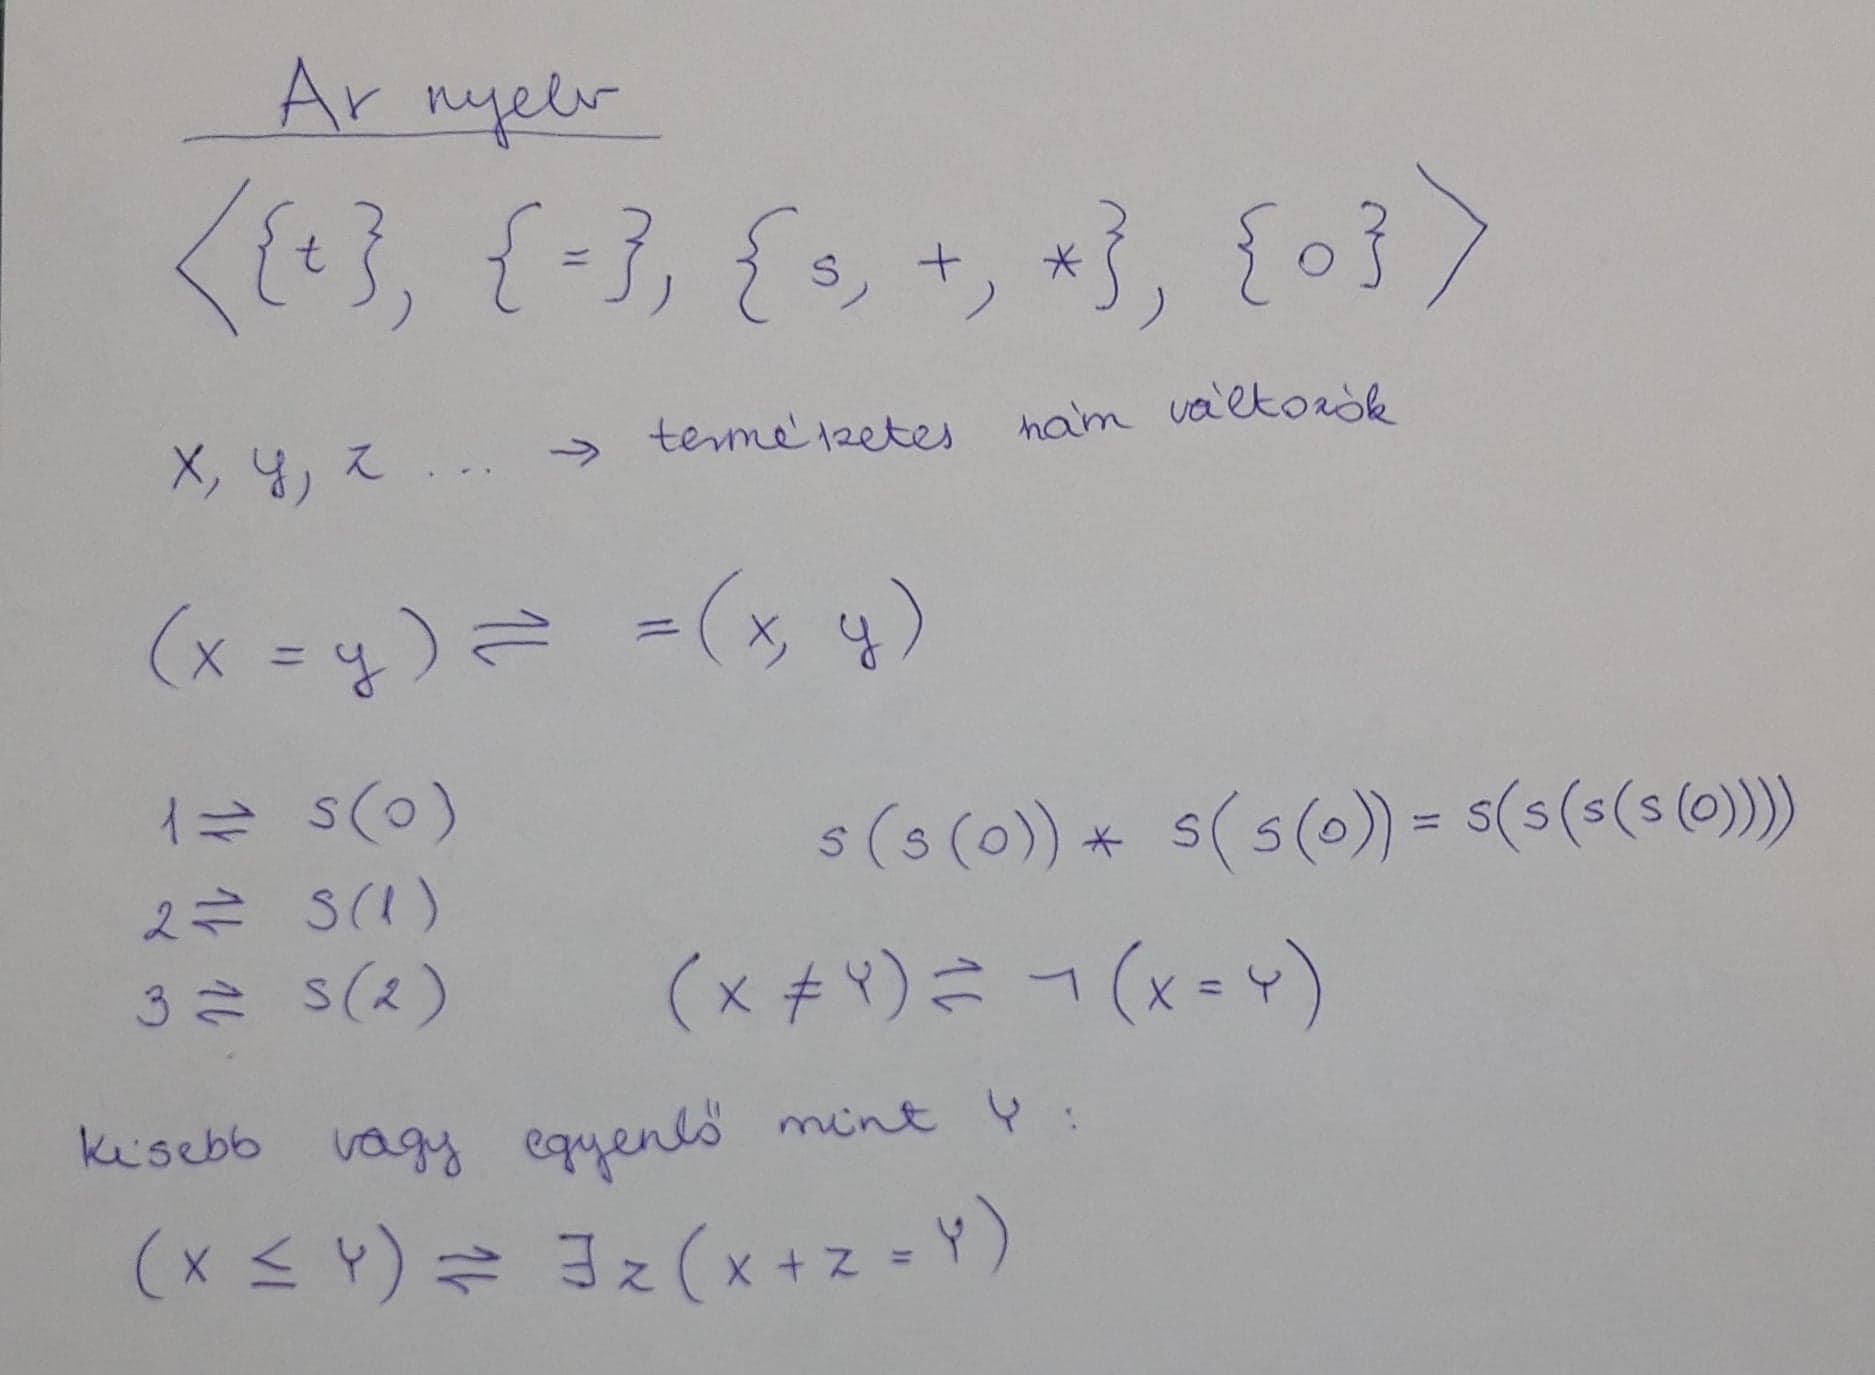 Ar nyelv
⟨{t}, {=}, {s, +, *}, {0}⟩
x, y, z ... → természetes szám változók
(x = y) ⇌ =(x, y)
1 ⇌ s(0)
s(s(0)) * s(s(0)) = s(s(s(s(0))))
2 ⇌ s(1)
3 ⇌ s(2)
(x ≠ y) ⇌ ¬(x = y)
kisebb vagy egyenlő mint y:
(x ≤ y) ⇌ ∃z(x + z = y)